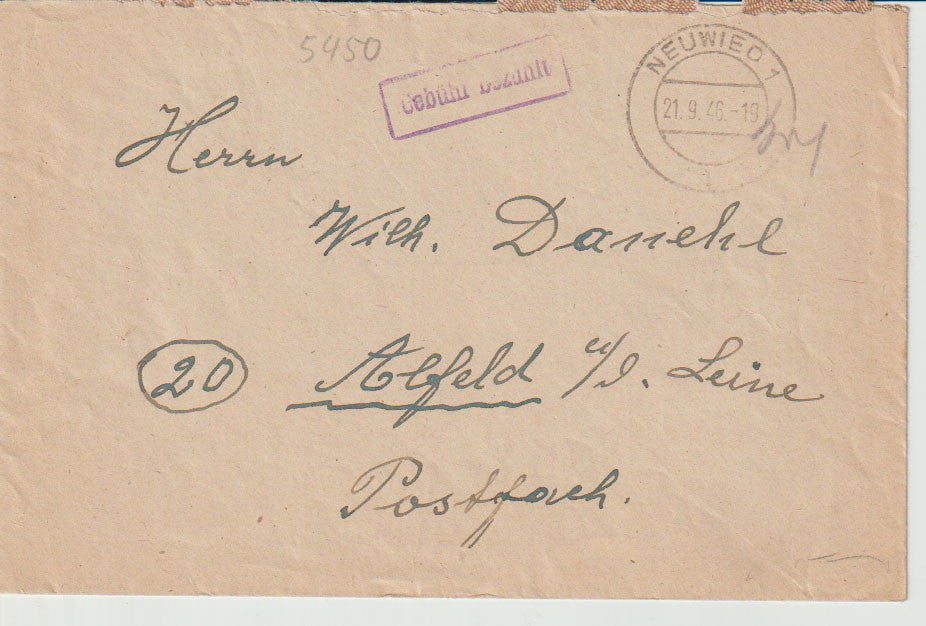 5450
Gebühr bezahlt
NEUWIED 1
21. 9. 46.-19
Herrn
Wilh. Danehl
20 Alfeld a/d. Leine
Postfach.